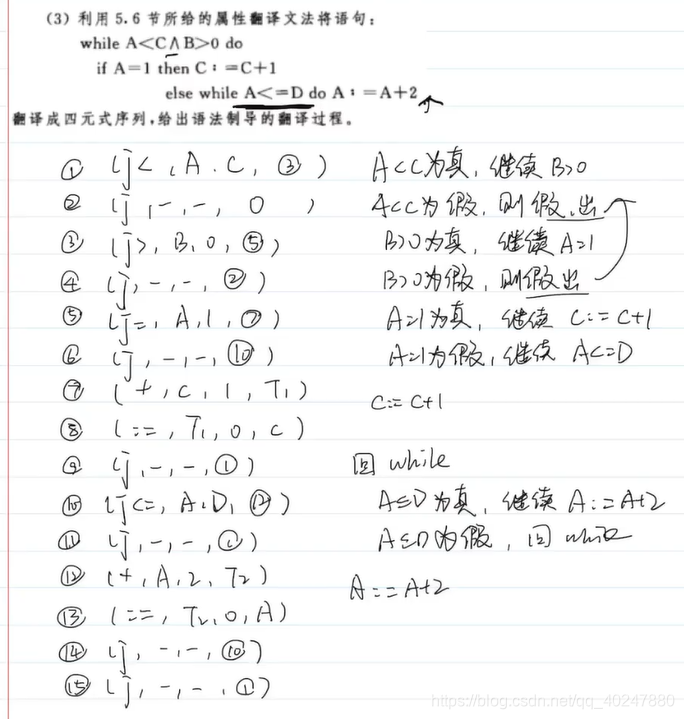 (3) 利用5.6节所给的属性翻译文法将语句:
while A<C∧B>0 do
if A=1 then C:=C+1
else while A<=D do A:=A+2
翻译成四元式序列,给出语法制导的翻译过程。
① (j<, A, C, ③) A<C为真, 继续 B>0
② (j, -, -, 0 ) A<C为假, 则假出
③ (j>, B, 0, ⑤) B>0为真, 继续 A=1
④ (j, -, -, ②) B>0为假, 则假出
⑤ (j=, A, 1, ⑦) A=1为真, 继续 C:=C+1
⑥ (j, -, -, ⑩) A=1为假, 继续 A<=D
⑦ (+, C, 1, T₁) C:=C+1
⑧ (:=, T₁, 0, C)
⑨ (j, -, -, ①) 回 while
⑩ (j<=, A, D, ⑫) A≤D为真, 继续 A:=A+2
⑪ (j, -, -, ①) A≤D为假, 回 while
⑫ (+, A, 2, T₂) A:=A+2
⑬ (:=, T₂, 0, A)
⑭ (j, -, -, ⑩)
⑮ (j, -, -, ①)
https://blog.csdn.net/qq_40247880